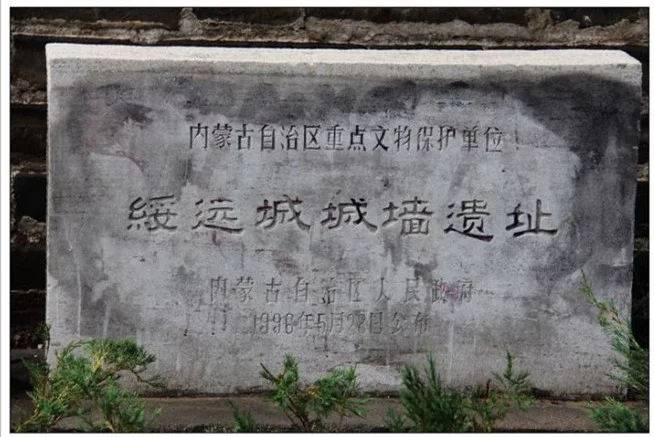 内蒙古自治区重点文物保护单位
綏远城城墙遗址
内蒙古自治区人民政府
1996年5月28日公布